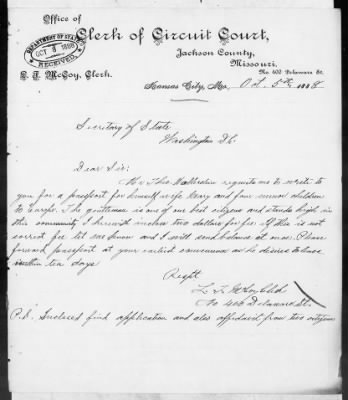 Office of
Clerk of Circuit Court,
Jackson County,
Missouri.
No. 402 Delaware St.
DEPARTMENT OF STATE
OCT 8 1888
RECEIVED
L. F. McCoy, Clerk.
Kansas City, Mo, Oct. 5th, 1888
Secretary of State
Washington D.C.
Dear Sir:
Mr Theo. requests me to write to
you for a passport for himself wife Mary and four minor children
to Europe. The gentleman is one of our best citizens and stands high in
this community. I herewith inclose two dollars for fee. If this is not
correct fee let me know and I will send balance at once. Please
forward passport at your earliest convenience as he desires to leave
within ten days
Respt
L. F. McCoy Clk
No 406 Delaware St.
P.S. Inclosed find application and also affidavit from two citizens